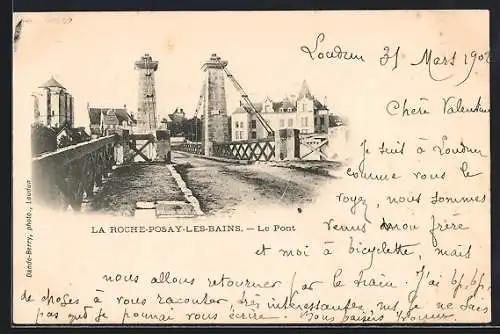 Loudun 31 Mars 190
Chère Valentine
Je suis à Loudun
comme vous le
voyez, nous sommes
venus mon frère
et moi à bicyclette, mais
nous allons retourner par le train. J'ai bp, bp,
de choses à vous raconter très intéressantes mais je ne sais
pas que je pourrai vous écrire. Nous baisers
LA ROCHE-POSAY-LES-BAINS. — Le Pont
Dando-Berry, phot., Loudun